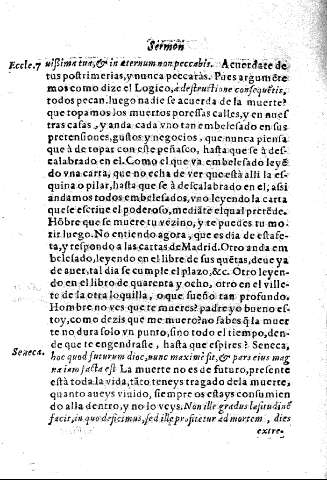 Sermón
Eccle. 7 uißima tua, & in æternum non peccabis. Acuerdate de
tus postrimerias, y nunca peccaràs. Pues argumẽte
mos como dize el Logico, à destructione consequẽtis,
todos pecan. luego nadie se acuerda de la muerte?
que topamos los muertos por essas calles, y en nues
tras casas, y anda cada vno tan embelesado en sus
pretensiones, gustos y negocios, que nunca piensa
que à de topar con este peñasco, hasta que se à des-
calabrado en el. Como el que va embelesado leyẽ
do vna carta, que no echa de ver que està alli la es-
quina o pilar, hasta que se à descalabrado en el; assi
andamos todos embelesados, vno leyendo la carta
que se escriue el poderoso, mediãte el qual pretẽde.
Hõbre que se muere tu vezino, y te puedes tu mo-
rir luego. No entiendo agora, que es dia de estafe-
ta, y respondo a las cartas de Madrid. Otro anda em
belesado, leyendo en el libro de sus quẽtas, deue ya
de auer, tal dia se cumple el plazo, &c. Otro leyen-
do en el libro de quarenta y ocho, otro en el ville-
te de la otra loquilla, o que sueño tan profundo.
Hombre no ves que te mueres? padre yo bueno es-
toy, como dezis que me muero? no sabes q̃ la muer
te no dura solo vn punto, sino todo el tiempo, den-
de que te engendraste, hasta que espires? Seneca,
Seneca. hoc quod futurum dicc, nunc maximè fit, & pars eius mag
na iam facta est La muerte no es de futuro, presente
està toda la vida, tãto teneys tragado de la muerte,
quanto aueys viuido, siempre os estays consumien
do alla dentro, y no lo veys. Non ille gradus lasitudinẽ
facit, in quo deficimus, sed ille profitetur ad mortem, dies
extre-